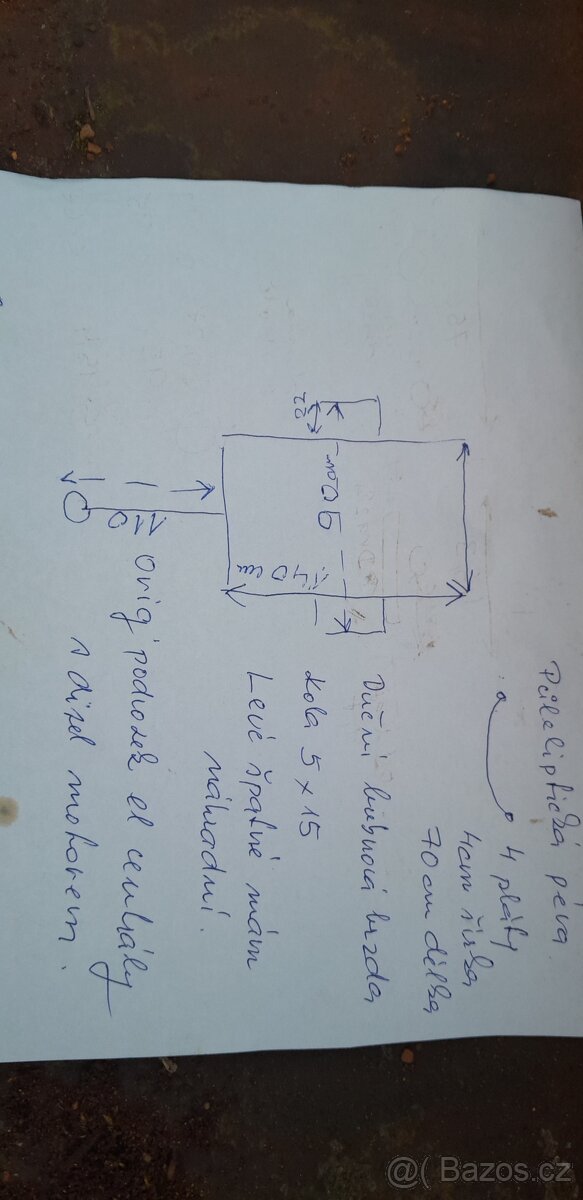 Půleliptická péra.
4 pláty
4cm šířka
70cm délka
Ruční bubnová brzda
kola 5 x 15
Levé špatné mám
náhradní.
orig podvozek el centrály
s dizel motorem.
90
140 cm
22
@( Bazoš.cz